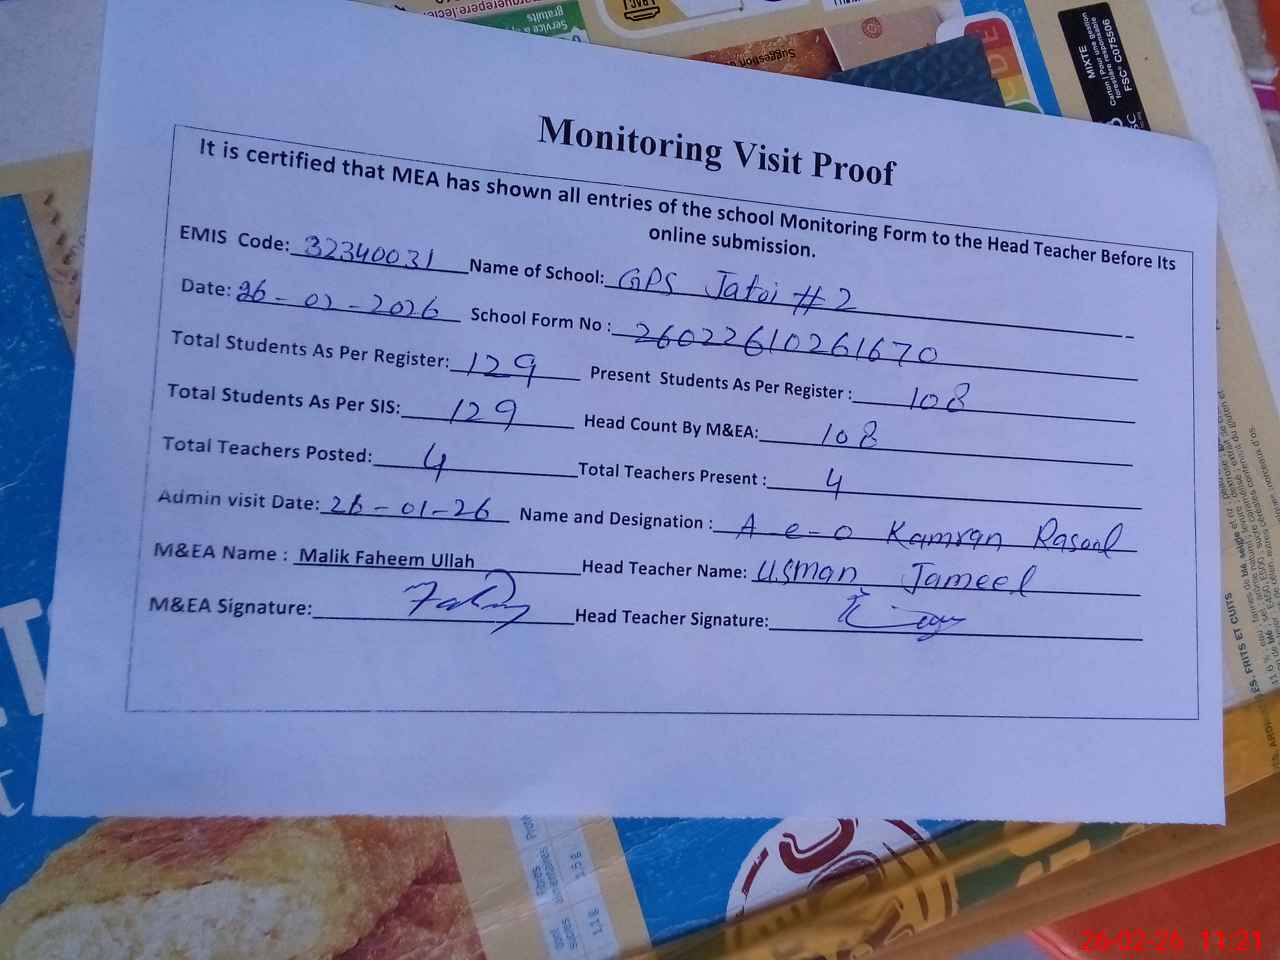 Service
gratuits
MIXTE
Carton | Pour une gestion
forestière responsable
FSC® C075506
Monitoring Visit Proof
It is certified that MEA has shown all entries of the school Monitoring Form to the Head Teacher Before Its
online submission.
EMIS Code: 32340031 Name of School: GPS Jatoi # 2
Date: 26-02-2026 School Form No : 26022610261670
Total Students As Per Register: 129 Present Students As Per Register : 108
Total Students As Per SIS: 129 Head Count By M&EA: 108
Total Teachers Posted: 4 Total Teachers Present : 4
Admin visit Date: 26-01-26 Name and Designation : A e-o Kamran Rasool
M&EA Name : Malik Faheem Ullah Head Teacher Name: Usman Jameel
M&EA Signature: Head Teacher Signature:
FRITS ET CUITS
26-02-26 11:21